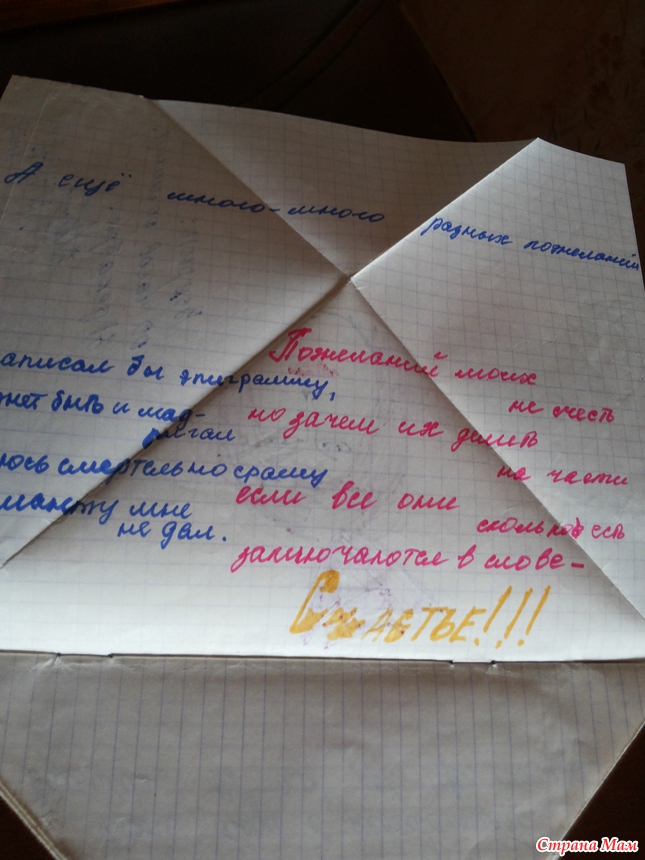 А ещё много-много разных пожеланий
аписал бы эпиграмму,
жет быть и мад-
ригал
юсь смертельно сраму
манжу мне
не дал.
Пожеланий моих
не счесть
но зачем их делить
на части
если все они
сколько есть
заключаются в слове-
Счастье!!!
Страна Мам